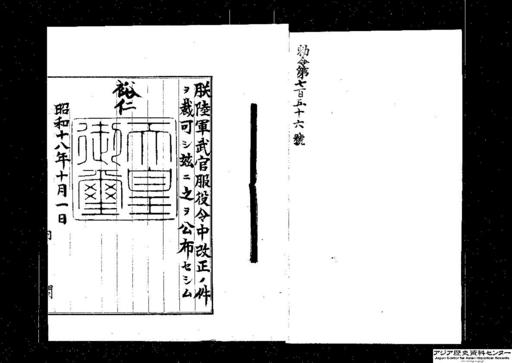 勅令第七百五十六號
朕陸軍武官服役令中改正ノ件
ヲ裁可シ茲ニ之ヲ公布セシム
裕仁
天皇御璽
昭和十八年十月一日
内閣
アジア歴史資料センター
Japan Center for Asian Historical Records